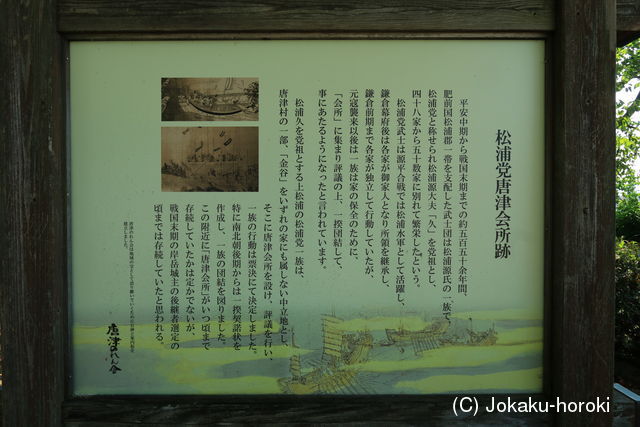 松浦党唐津会所跡
平安中期から戦国末期までの約五百五十余年間、
肥前国松浦郡一帯を支配した武士団は松浦源氏の一族で、
松浦党と称せられ松浦源大夫「久」を党祖とし、
四十八家から五十数家に別れて繁栄したという。
松浦党武士は源平合戦では松浦水軍として活躍し、
鎌倉幕府後は各家が御家人となり所領を継承し、
鎌倉前期まで各家が独立して行動していたが、
元寇襲来以後は一族は家の保全のために、
「会所」に集まり評議の上、一揆団結して、
事にあたるようになったと言われています。
松浦久を党祖とする上松浦の松浦党一族は、
唐津村の一部、「金谷」をいずれの家にも属しない中立地とし、
そこに唐津会所を設け、評議を行い、
一族の行動は票決にて決定しました。
特に南北朝後期からは一揆契諾状を
作成し、一族の団結を図りました。
この附近に「唐津会所」がいつ頃まで
存続していたかは定かでないが、
戦国末期の岸岳城主の後継者選定の
頃までは存続していたと思われる。
唐津のれん会
(C) Jokaku-horoki